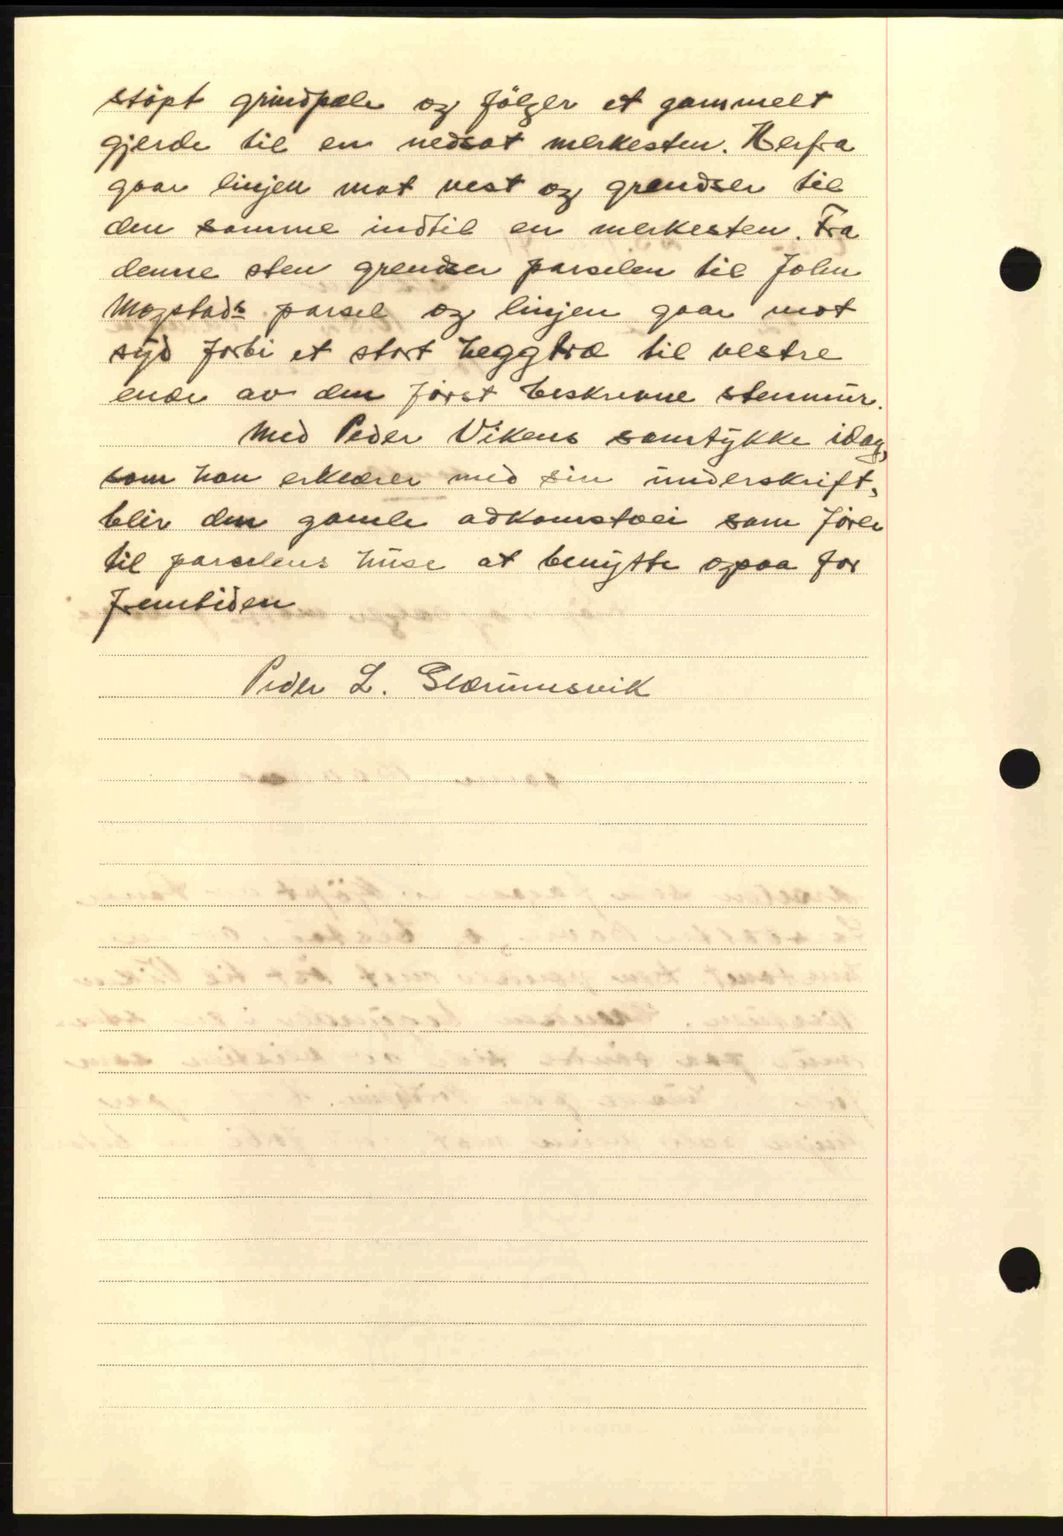 støpt grindpæle og følger et gammelt
gjerde til en nedsat merkesten. Herfra
gaar linjen mot vest og grendser til
den samme indtil en merkesten. Fra
denne sten grendser parselen til John
Mogstads parsel og linjen gaar mot
syd forbi et stort heggtræ til vestre
ende av den først beskrevne stenmur.
Med Peder Vikens samtykke idag,
som han erklærer med sin underskrift,
blir den gamle adkomstvei som fører
til parselens huse at benytte ogsaa for
fremtiden
Peder L. Glærumsvik